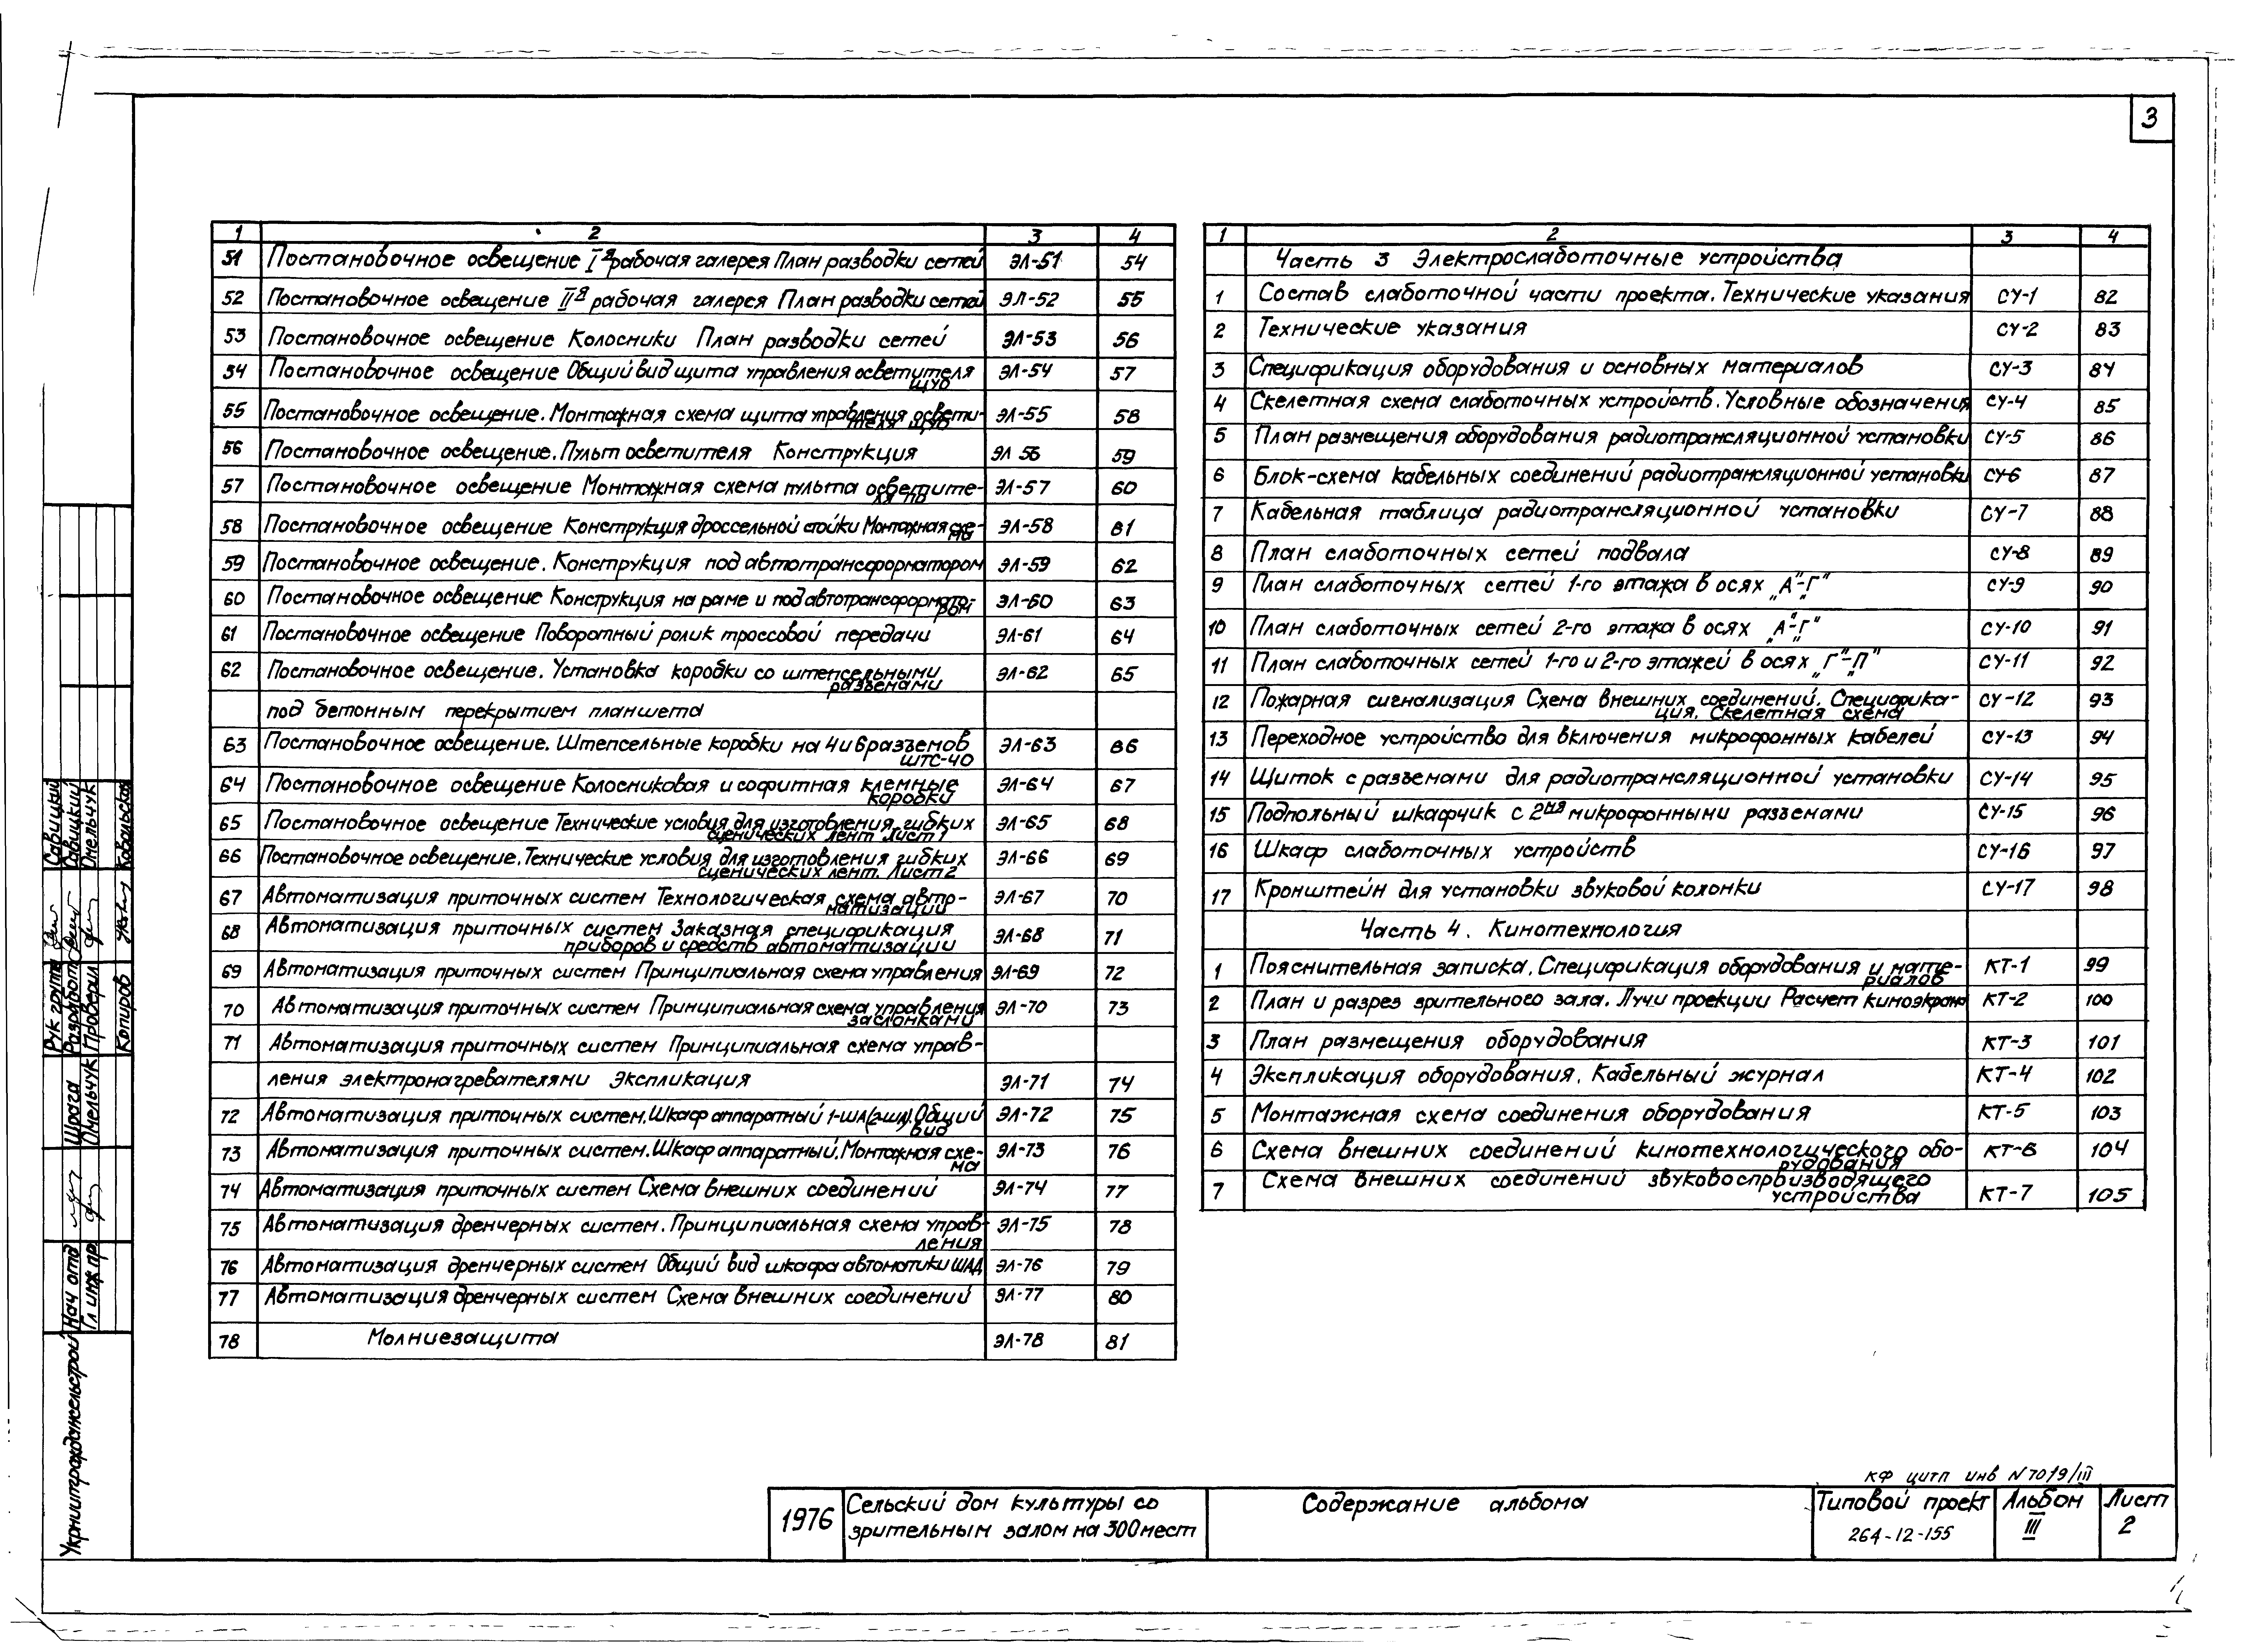 3
1 2 3 4
51 Постановочное освещение I я рабочая галерея План разводки сетей ЭЛ-51 54
52 Постановочное освещение II я рабочая галерея План разводки сетей ЭЛ-52 55
53 Постановочное освещение Колосники План разводки сетей ЭЛ-53 56
54 Постановочное освещение Общий вид щита управления осветителя ЭЛ-54 57
ЩУО
55 Постановочное освещение. Монтажная схема щита управления освети- ЭЛ-55 58
теля ЩУО
56 Постановочное освещение. Пульт осветителя Конструкция ЭЛ 56 59
57 Постановочное освещение Монтажная схема пульта осветите- ЭЛ-57 60
ля ПО
58 Постановочное освещение Конструкция дроссельной стойки Монтажная схе- ЭЛ-58 61
ма
59 Постановочное освещение. Конструкция под автотрансформатором ЭЛ-59 62
60 Постановочное освещение Конструкция на раме и под автотрансформато- ЭЛ-60 63
ром
61 Постановочное освещение Поворотный ролик троссовой передачи ЭЛ-61 64
62 Постановочное освещение. Установка коробки со штепсельными ЭЛ-62 65
разъемами
под бетонным перекрытием планшета
63 Постановочное освещение. Штепсельные коробки на 4 и 6 разъемов ЭЛ-63 66
ШТС-40
64 Постановочное освещение Колосниковая и софитная клемные ЭЛ-64 67
коробки
65 Постановочное освещение Технические условия для изготовления гибких ЭЛ-65 68
сценических лент Лист 1
66 Постановочное освещение. Технические условия для изготовления гибких ЭЛ-66 69
сценических лент. Лист 2
67 Автоматизация приточных систем Технологическая схема авто- ЭЛ-67 70
матизации
68 Автоматизация приточных систем Заказная спецификация ЭЛ-68 71
приборов и средств автоматизации
69 Автоматизация приточных систем Принципиальная схема управления ЭЛ-69 72
70 Автоматизация приточных систем Принципиальная схема управления ЭЛ-70 73
заслонками
71 Автоматизация приточных систем Принципиальная схема управ-
ления электронагревателями Экспликация ЭЛ-71 74
72 Автоматизация приточных систем. Шкаф аппаратный 1-ША(2-ША). Общий ЭЛ-72 75
вид
73 Автоматизация приточных систем. Шкаф аппаратный. Монтажная схе- ЭЛ-73 76
ма
74 Автоматизация приточных систем Схема внешних соединений ЭЛ-74 77
75 Автоматизация дренчерных систем. Принципиальная схема управ- ЭЛ-75 78
ления
76 Автоматизация дренчерных систем Общий вид шкафа автоматики ШАД ЭЛ-76 79
77 Автоматизация дренчерных систем Схема внешних соединений ЭЛ-77 80
78 Молниезащита ЭЛ-78 81
1 2 3 4
Часть 3 Электрослаботочные устройства
1 Состав слаботочной части проекта. Технические указания СУ-1 82
2 Технические указания СУ-2 83
3 Спецификация оборудования и основных материалов СУ-3 84
4 Скелетная схема слаботочных устройств. Условные обозначения СУ-4 85
5 План размещения оборудования радиотрансляционной установки СУ-5 86
6 Блок-схема кабельных соединений радиотрансляционной установки СУ-6 87
7 Кабельная таблица радиотрансляционной установки СУ-7 88
8 План слаботочных сетей подвала СУ-8 89
9 План слаботочных сетей 1-го этажа в осях „А"-„Г" СУ-9 90
10 План слаботочных сетей 2-го этажа в осях „А"-„Г" СУ-10 91
11 План слаботочных сетей 1-го и 2-го этажей в осях „Г"-„П" СУ-11 92
12 Пожарная сигнализация Схема внешних соединений. Специфика- СУ-12 93
ция. Скелетная схема
13 Переходное устройство для включения микрофонных кабелей СУ-13 94
14 Щиток с разъемами для радиотрансляционной установки СУ-14 95
15 Подпольный шкафчик с 2мя микрофонными разъемами СУ-15 96
16 Шкаф слаботочных устройств СУ-16 97
17 Кронштейн для установки звуковой колонки СУ-17 98
Часть 4. Кинотехнология
1 Пояснительная записка. Спецификация оборудования и мате- КТ-1 99
риалов
2 План и разрез зрительного зала. Лучи проекции Расчет киноэкрана КТ-2 100
3 План размещения оборудования КТ-3 101
4 Экспликация оборудования. Кабельный журнал КТ-4 102
5 Монтажная схема соединения оборудования КТ-5 103
6 Схема внешних соединений кинотехнологического обо- КТ-6 104
рудования
7 Схема внешних соединений звуковоспроизводящего КТ-7 105
устройства
КФ ЦИТП ИНВ N 7019/III
1976
Сельский дом культуры со
зрительным залом на 300 мест
Содержание альбома
Типовой проект
264-12-155
Альбом
III
Лист
2
Укрниипграждансельстрой
Нач отд Шрага
Гл инж пр. Омельчук
Рук группы Савицкий
Разработ Савицкий
Проверил Омельчук
Копиров Ковальская